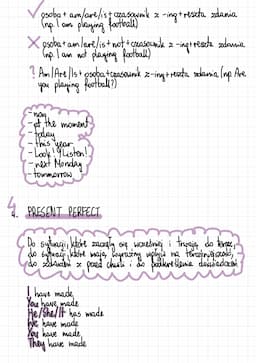 osoba + am/are/is + czasownik z -ing + reszta zdania
(np. I am playing football)
osoba + am/are/is + not + czasownik z -ing + reszta zdania
(np. I am not playing football)
? Am/Are/Is + osoba + czasownik z -ing + reszta zdania (np. Are
you playing football?)
- now
- at the moment
- today
- this year
- Look! / Listen!
- next Monday
- tommorow
4. PRESENT PERFECT
Do sytuacji, które zaczęły się wcześniej i trwają do teraz,
do sytuacji, które mają wyraźny wpływ na teraźniejszość,
do zdarzeń z przed chwili i do podkreślenia doświadczeń
I have made
You have made
He/She/It has made
We have made
You have made
They have made